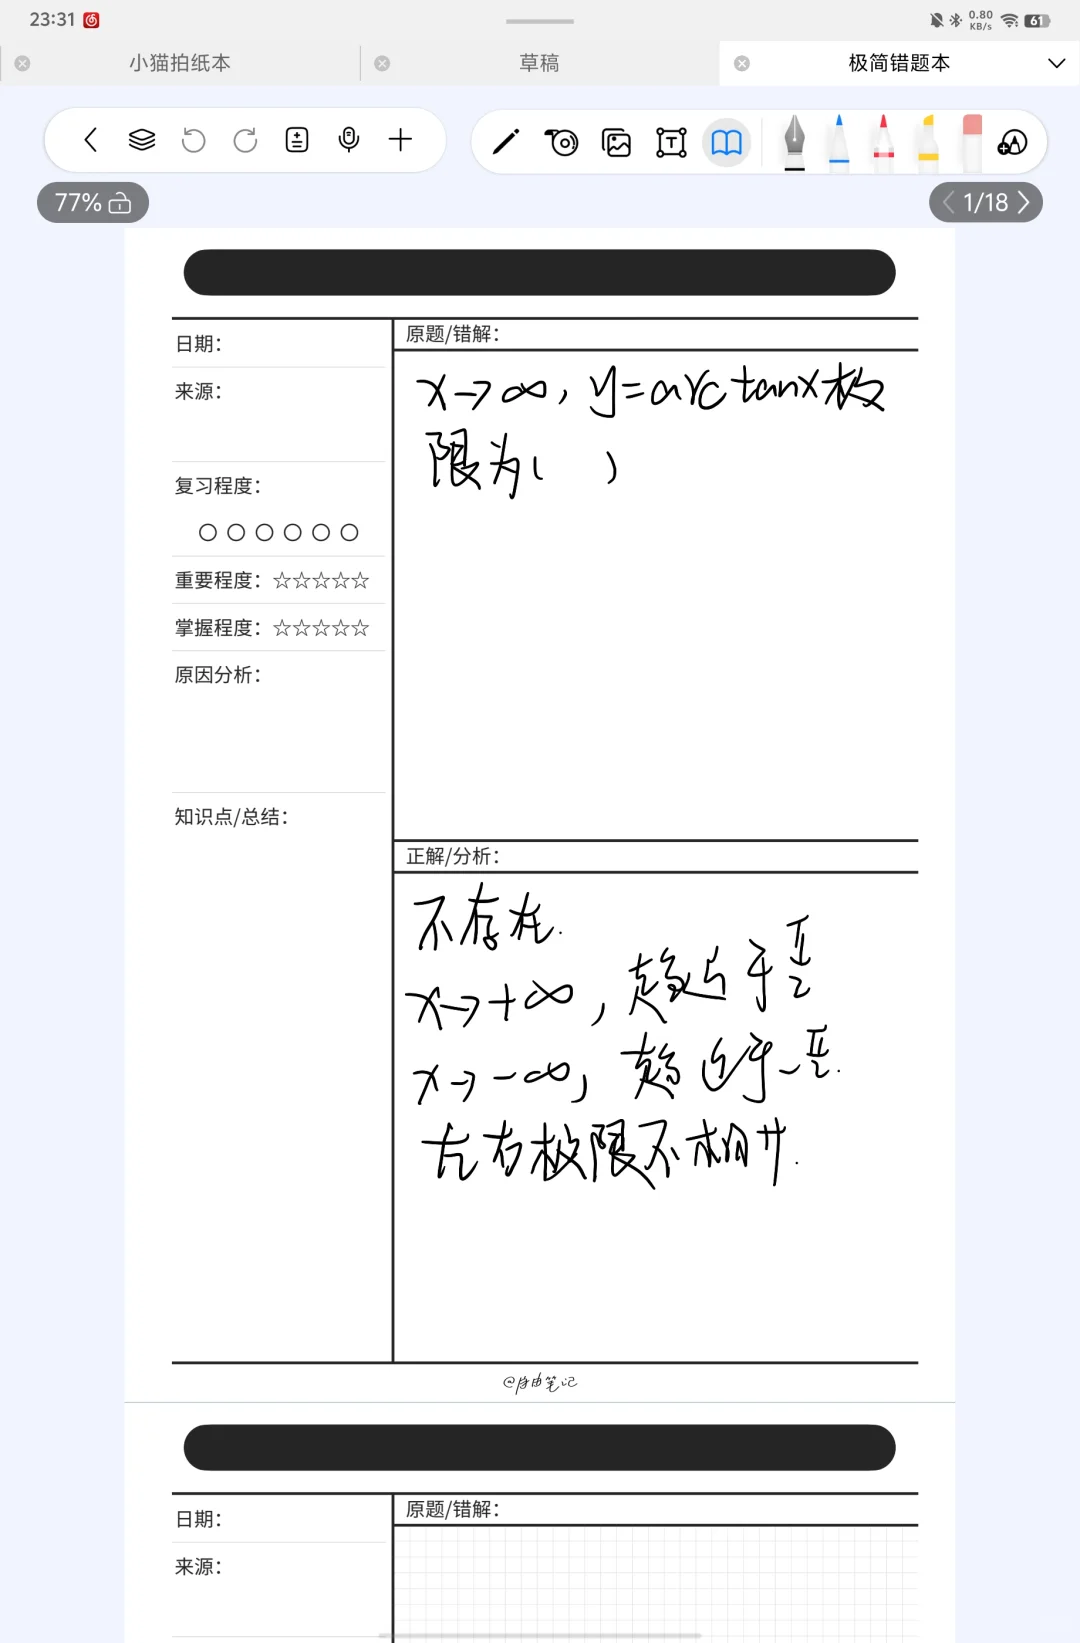 23:31
0.80 KB/s
61
小猫拍纸本
草稿
极简错题本
77%
1/18
日期：
来源：
复习程度：
重要程度：☆☆☆☆☆
掌握程度：☆☆☆☆☆
原因分析：
知识点/总结：
原题/错解：
x→∞, y=arctanx极
限为( )
正解/分析：
不存在.
x→+∞, 趋近于π/2
x→-∞, 趋近于-π/2.
左右极限不相等.
@自由笔记
日期：
来源：
原题/错解：